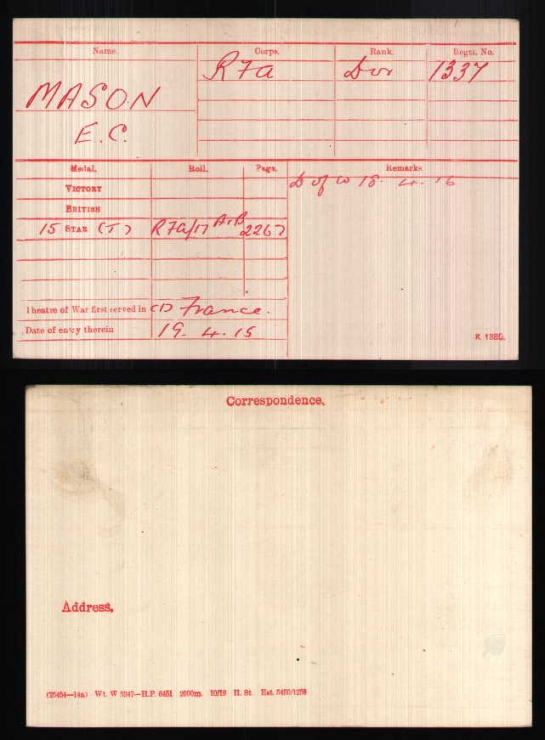 Name. Corps. Rank. Regtl. No.
MASON RFA Dvr 1337
E.C.
Medal. Roll. Page. Remarks
VICTORY D of W 18. 4. 16
BRITISH
15 STAR (T) RFA/17 A+B 2267
Theatre of War first served in (1) France.
Date of entry therein 19. 4. 15
K 1380.
Correspondence.
Address.
Wt. W 5347—H.P. 2000m. 10/19 H. St.